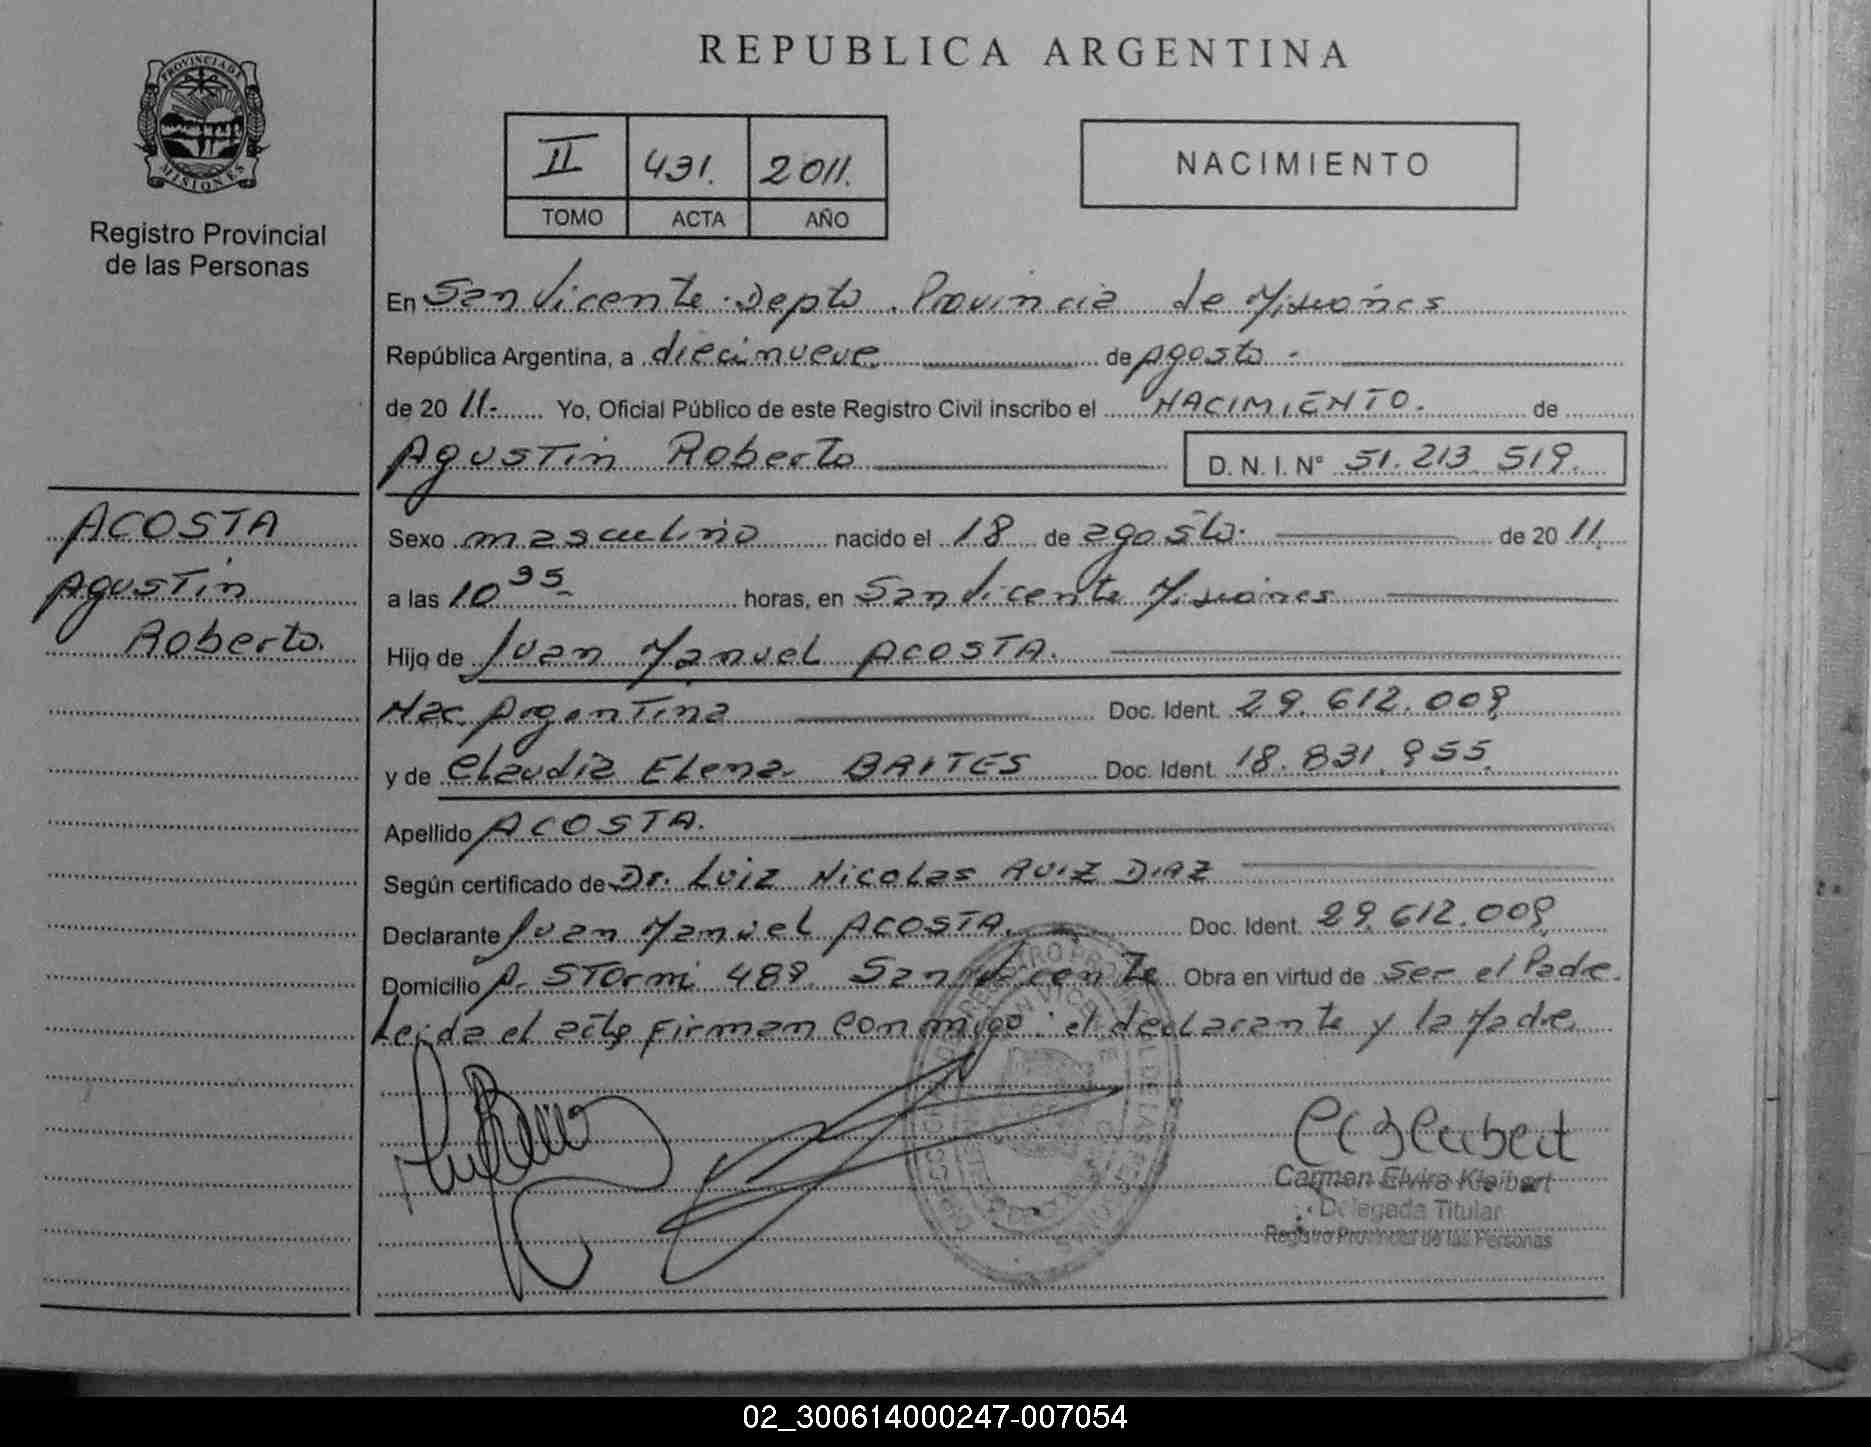 REPUBLICA ARGENTINA
PROVINCIA DE
MISIONES
Registro Provincial
de las Personas
II 431. 2011.
TOMO ACTA AÑO
NACIMIENTO
En San Vicente. Depto. Provincia de Misiones
República Argentina, a diecinueve de Agosto.
de 20 11.- Yo, Oficial Público de este Registro Civil inscribo el NACIMIENTO. de
Agustin Roberto D. N. I. N° 51.213.519.
ACOSTA
Agustin
Roberto.
Sexo masculino nacido el 18 de agosto. de 20 11.
a las 10 35 horas, en San Vicente Misiones
Hijo de Juan Manuel ACOSTA.
Nac. Argentina Doc. Ident. 29.612.009
y de Claudia Elena BRITES Doc. Ident. 18.831.955.
Apellido ACOSTA.
Según certificado de Dr. Luiz Nicolas RUIZ DIAZ
Declarante Juan Manuel ACOSTA. Doc. Ident. 29.612.009
Domicilio A. STORNI 489. San Vicente Obra en virtud de Ser el Padre.
Leida el acta firman conmigo: el declarante y la Madre
Carmen Elvira Kleibert
Delegada Titular
Registro Provincial de las Personas
02_300614000247-007054